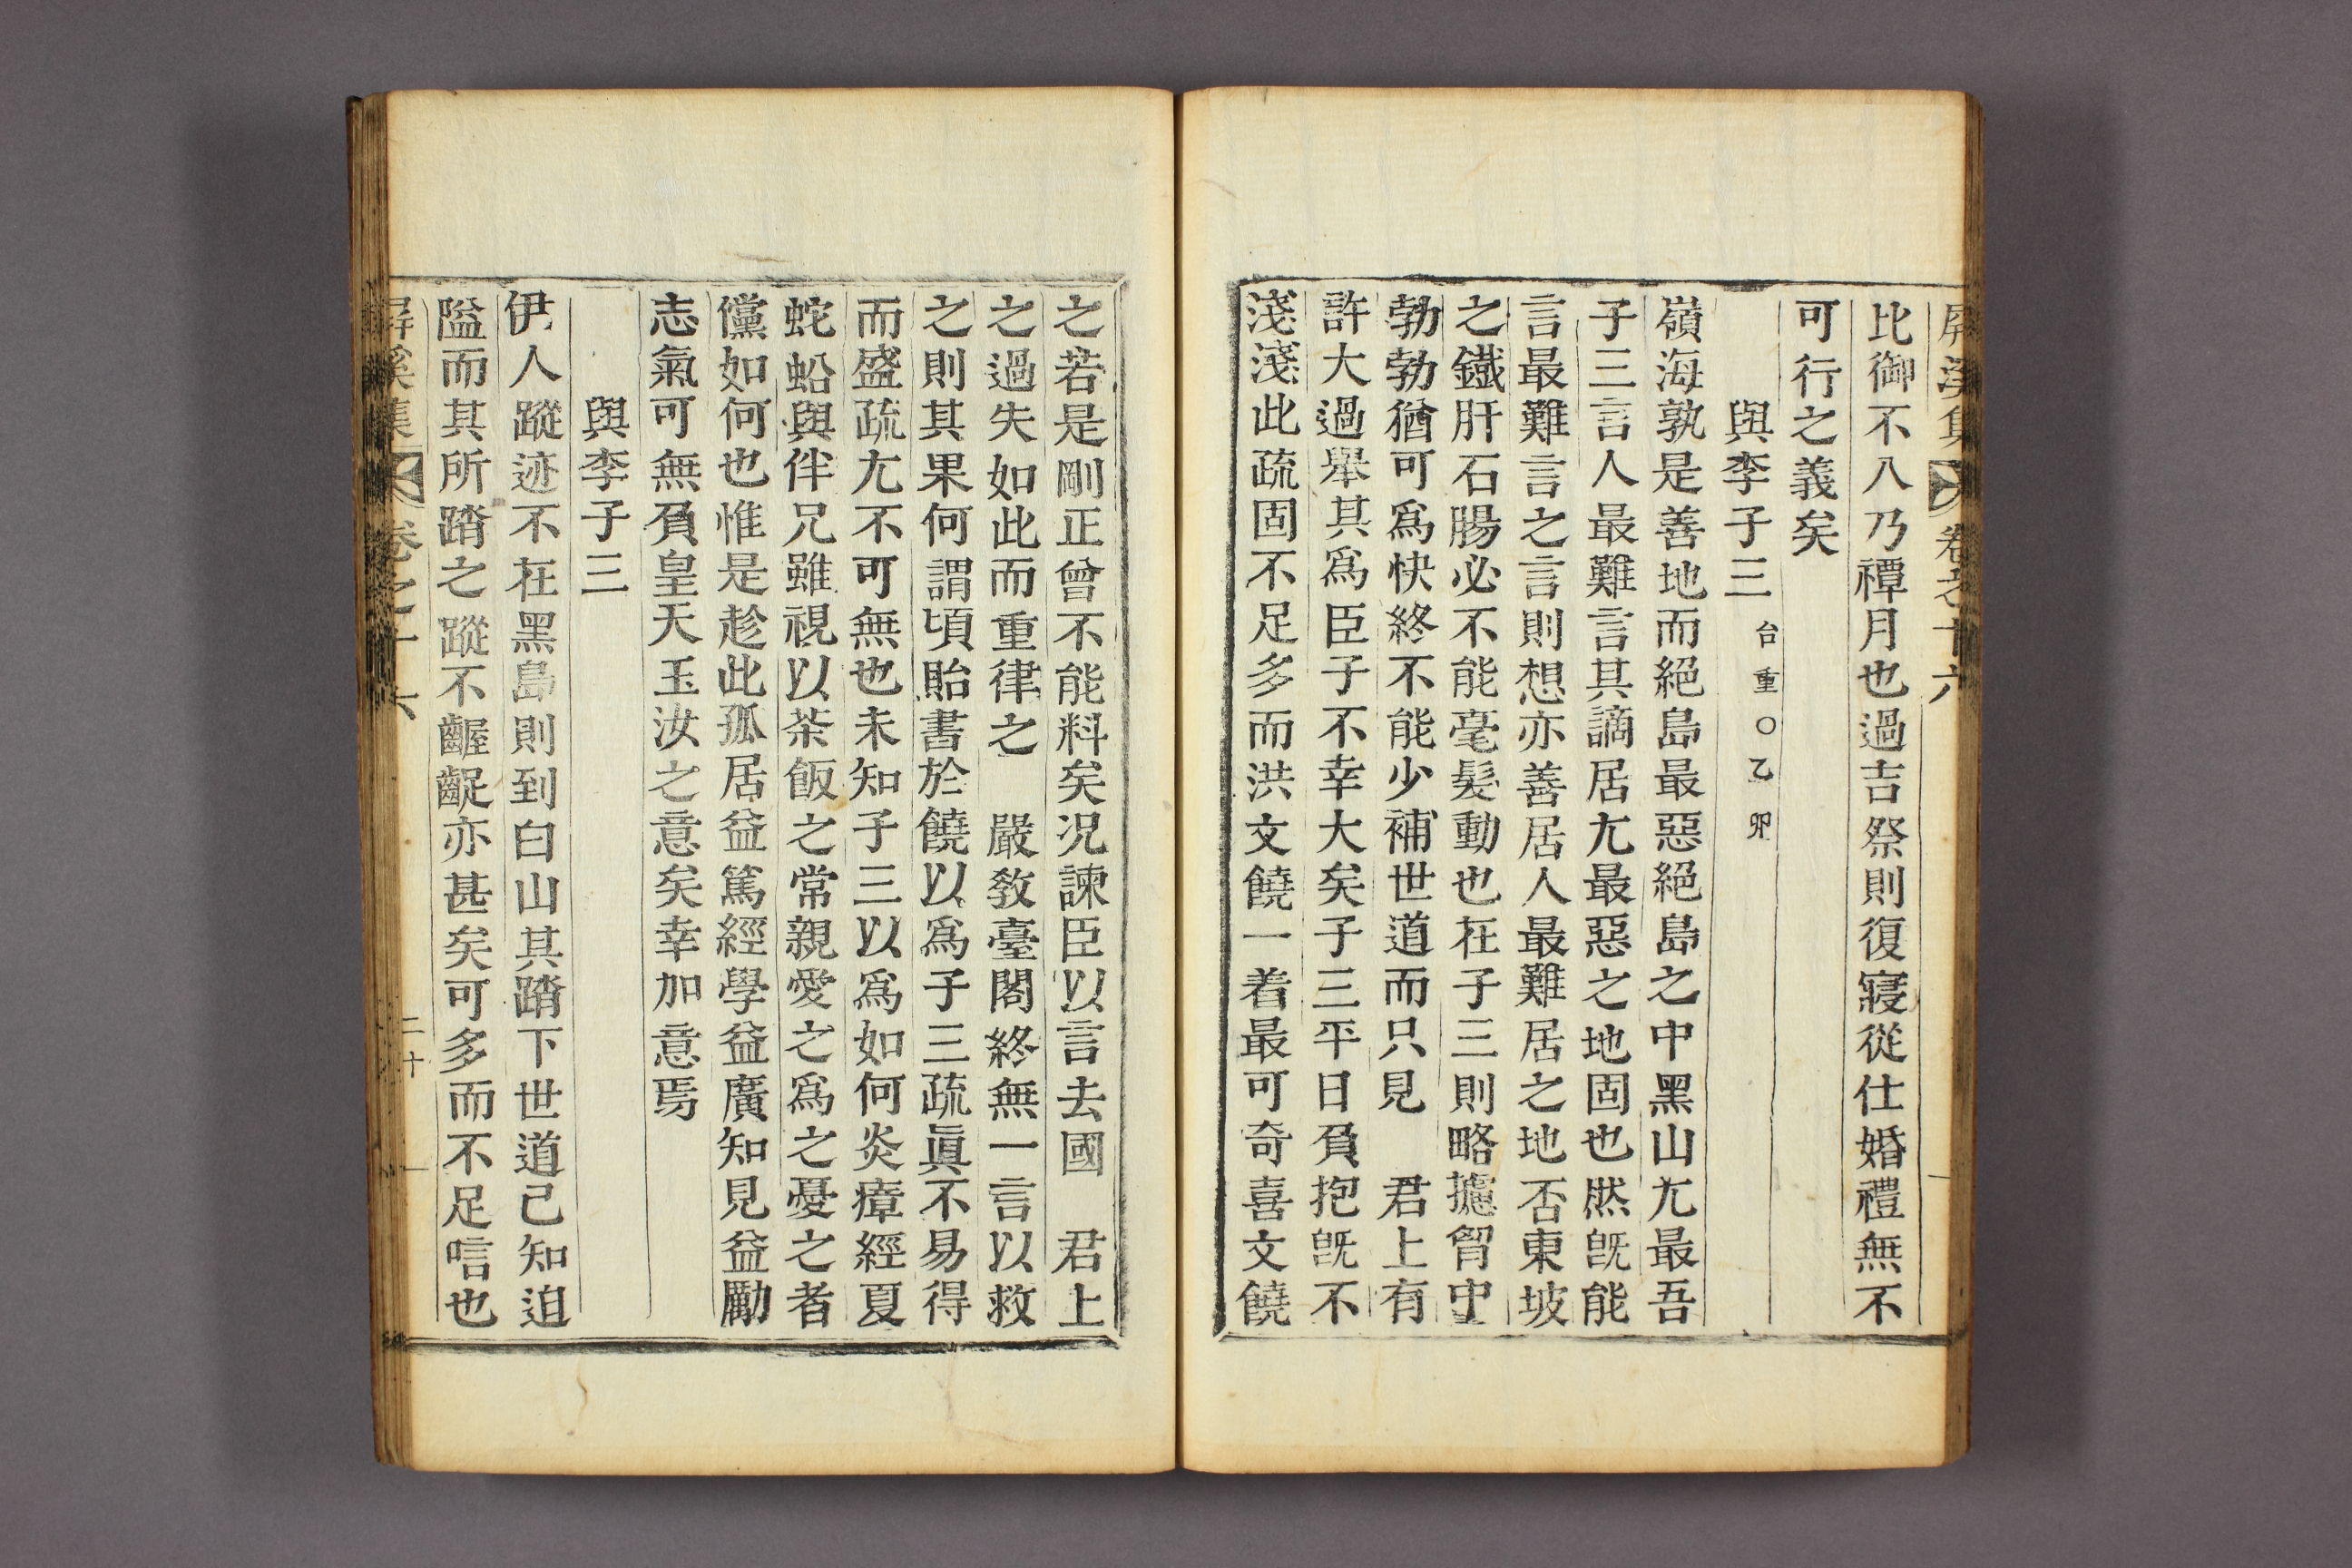 屏溪集 卷之十六
比御不入乃禫月也過吉祭則復寢從仕婚禮無不
可行之義矣
與李子三台重○乙卯
嶺海孰是善地而絕島最惡絕島之中黑山尤最吾
子三言人最難言其謫居尤最惡之地固也然旣能
言最難言之言則想亦善居人最難居之地否東坡
之鐵肝石腸必不能毫髮動也在子三則略攄胷中
勃勃猶可爲快終不能少補世道而只見 君上有
許大過舉其爲臣子不幸大矣子三平日負抱旣不
淺淺此疏固不足多而洪文饒一着最可奇喜文饒
之若是剛正曾不能料矣况諫臣以言去國 君上
之過失如此而重律之 嚴教臺閣終無一言以救
之則其果何謂頃貽書於饒以爲子三疏眞不易得
而盛疏尤不可無也未知子三以爲如何炎瘴經夏
蛇蚣與伴兄雖視以茶飯之常親愛之爲之憂之者
儻如何也惟是趁此孤居益篤經學益廣知見益勵
志氣可無負皇天玉汝之意矣幸加意焉
與李子三
伊人蹤迹不在黑島則到白山其踏下世道已知迫
隘而其所踏之蹤不齷齪亦甚矣可多而不足唁也
屏溪集 卷之十六 二十